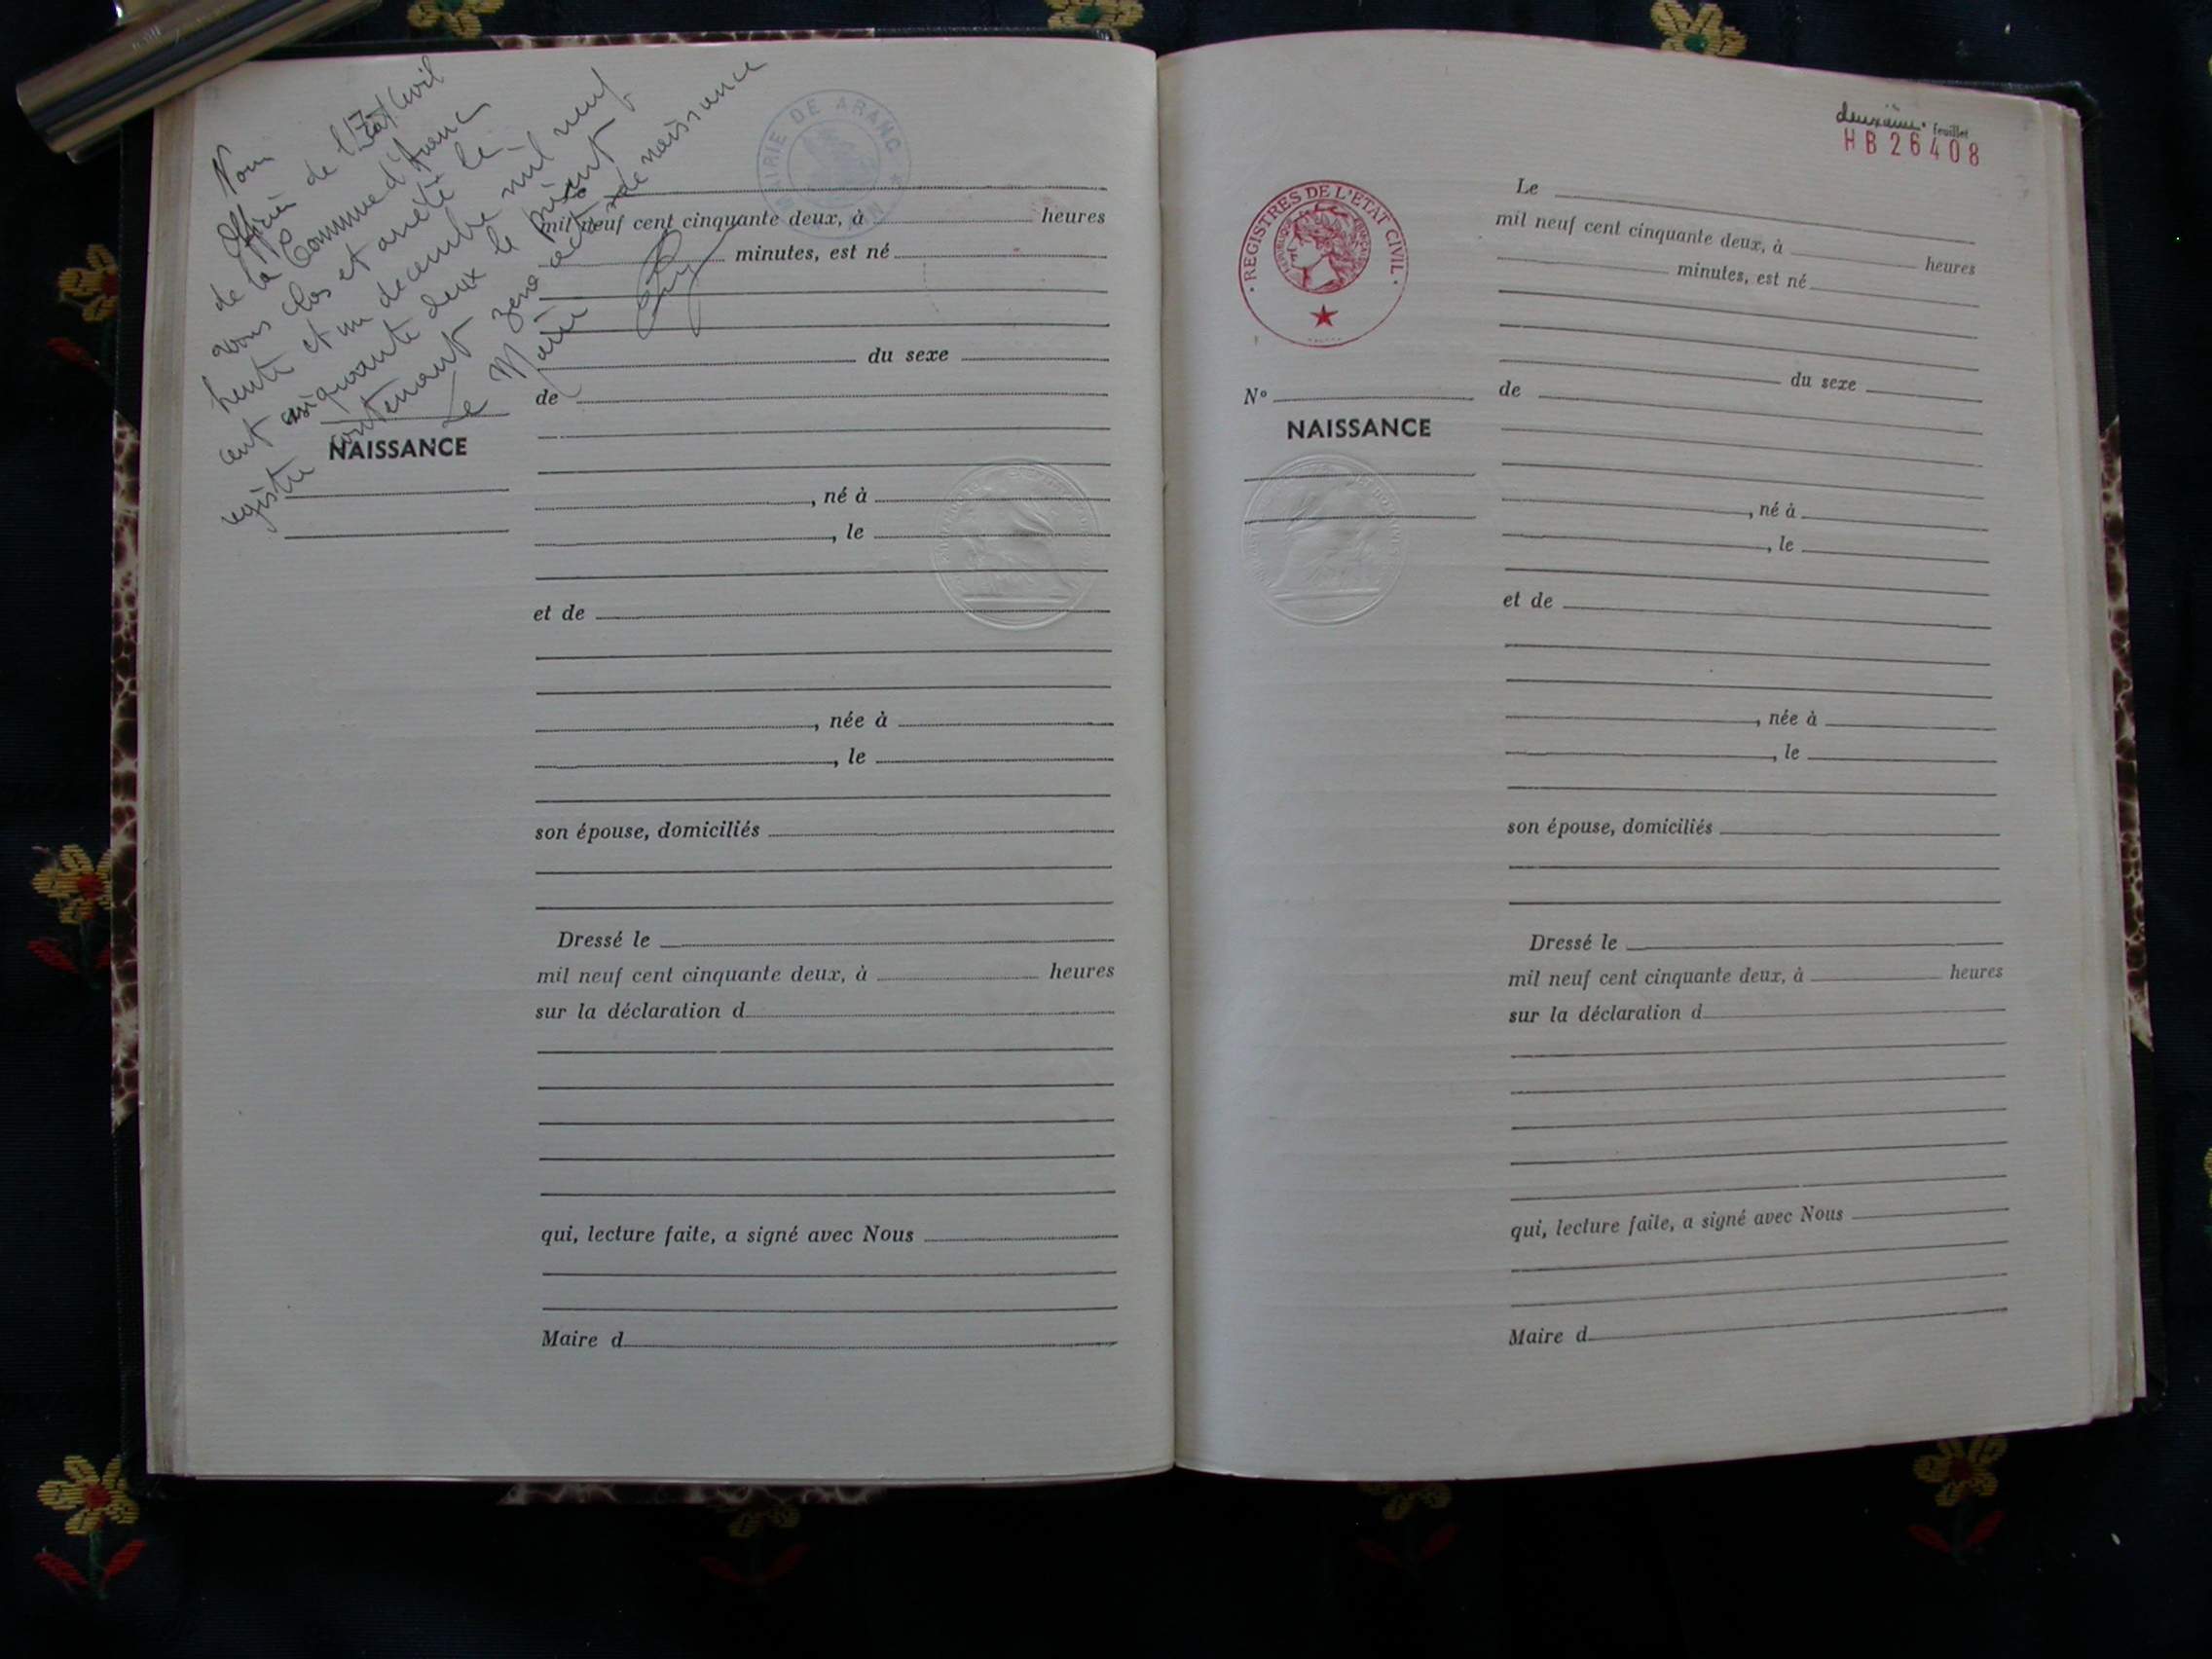 Nous
Officier de l'Etat Civil
de la Commune d'Aranc
avons clos et arrêté le
trente et un décembre mil neuf
cent cinquante deux le présent
registre contenant zéro acte de naissance
Le Maire
MAIRIE DE ARANC
mil neuf cent cinquante deux, à heures
minutes, est né
du sexe
de
NAISSANCE
, né à
, le
et de
, née à
, le
son épouse, domiciliés
Dressé le
mil neuf cent cinquante deux, à heures
sur la déclaration d
qui, lecture faite, a signé avec Nous
Maire d
deuxième feuillet
HB26408
· REGISTRES DE L'ETAT CIVIL ·
Le
mil neuf cent cinquante deux, à heures
minutes, est né
du sexe
N° de
NAISSANCE
, né à
, le
et de
, née à
, le
son épouse, domiciliés
Dressé le
mil neuf cent cinquante deux, à heures
sur la déclaration d
qui, lecture faite, a signé avec Nous
Maire d